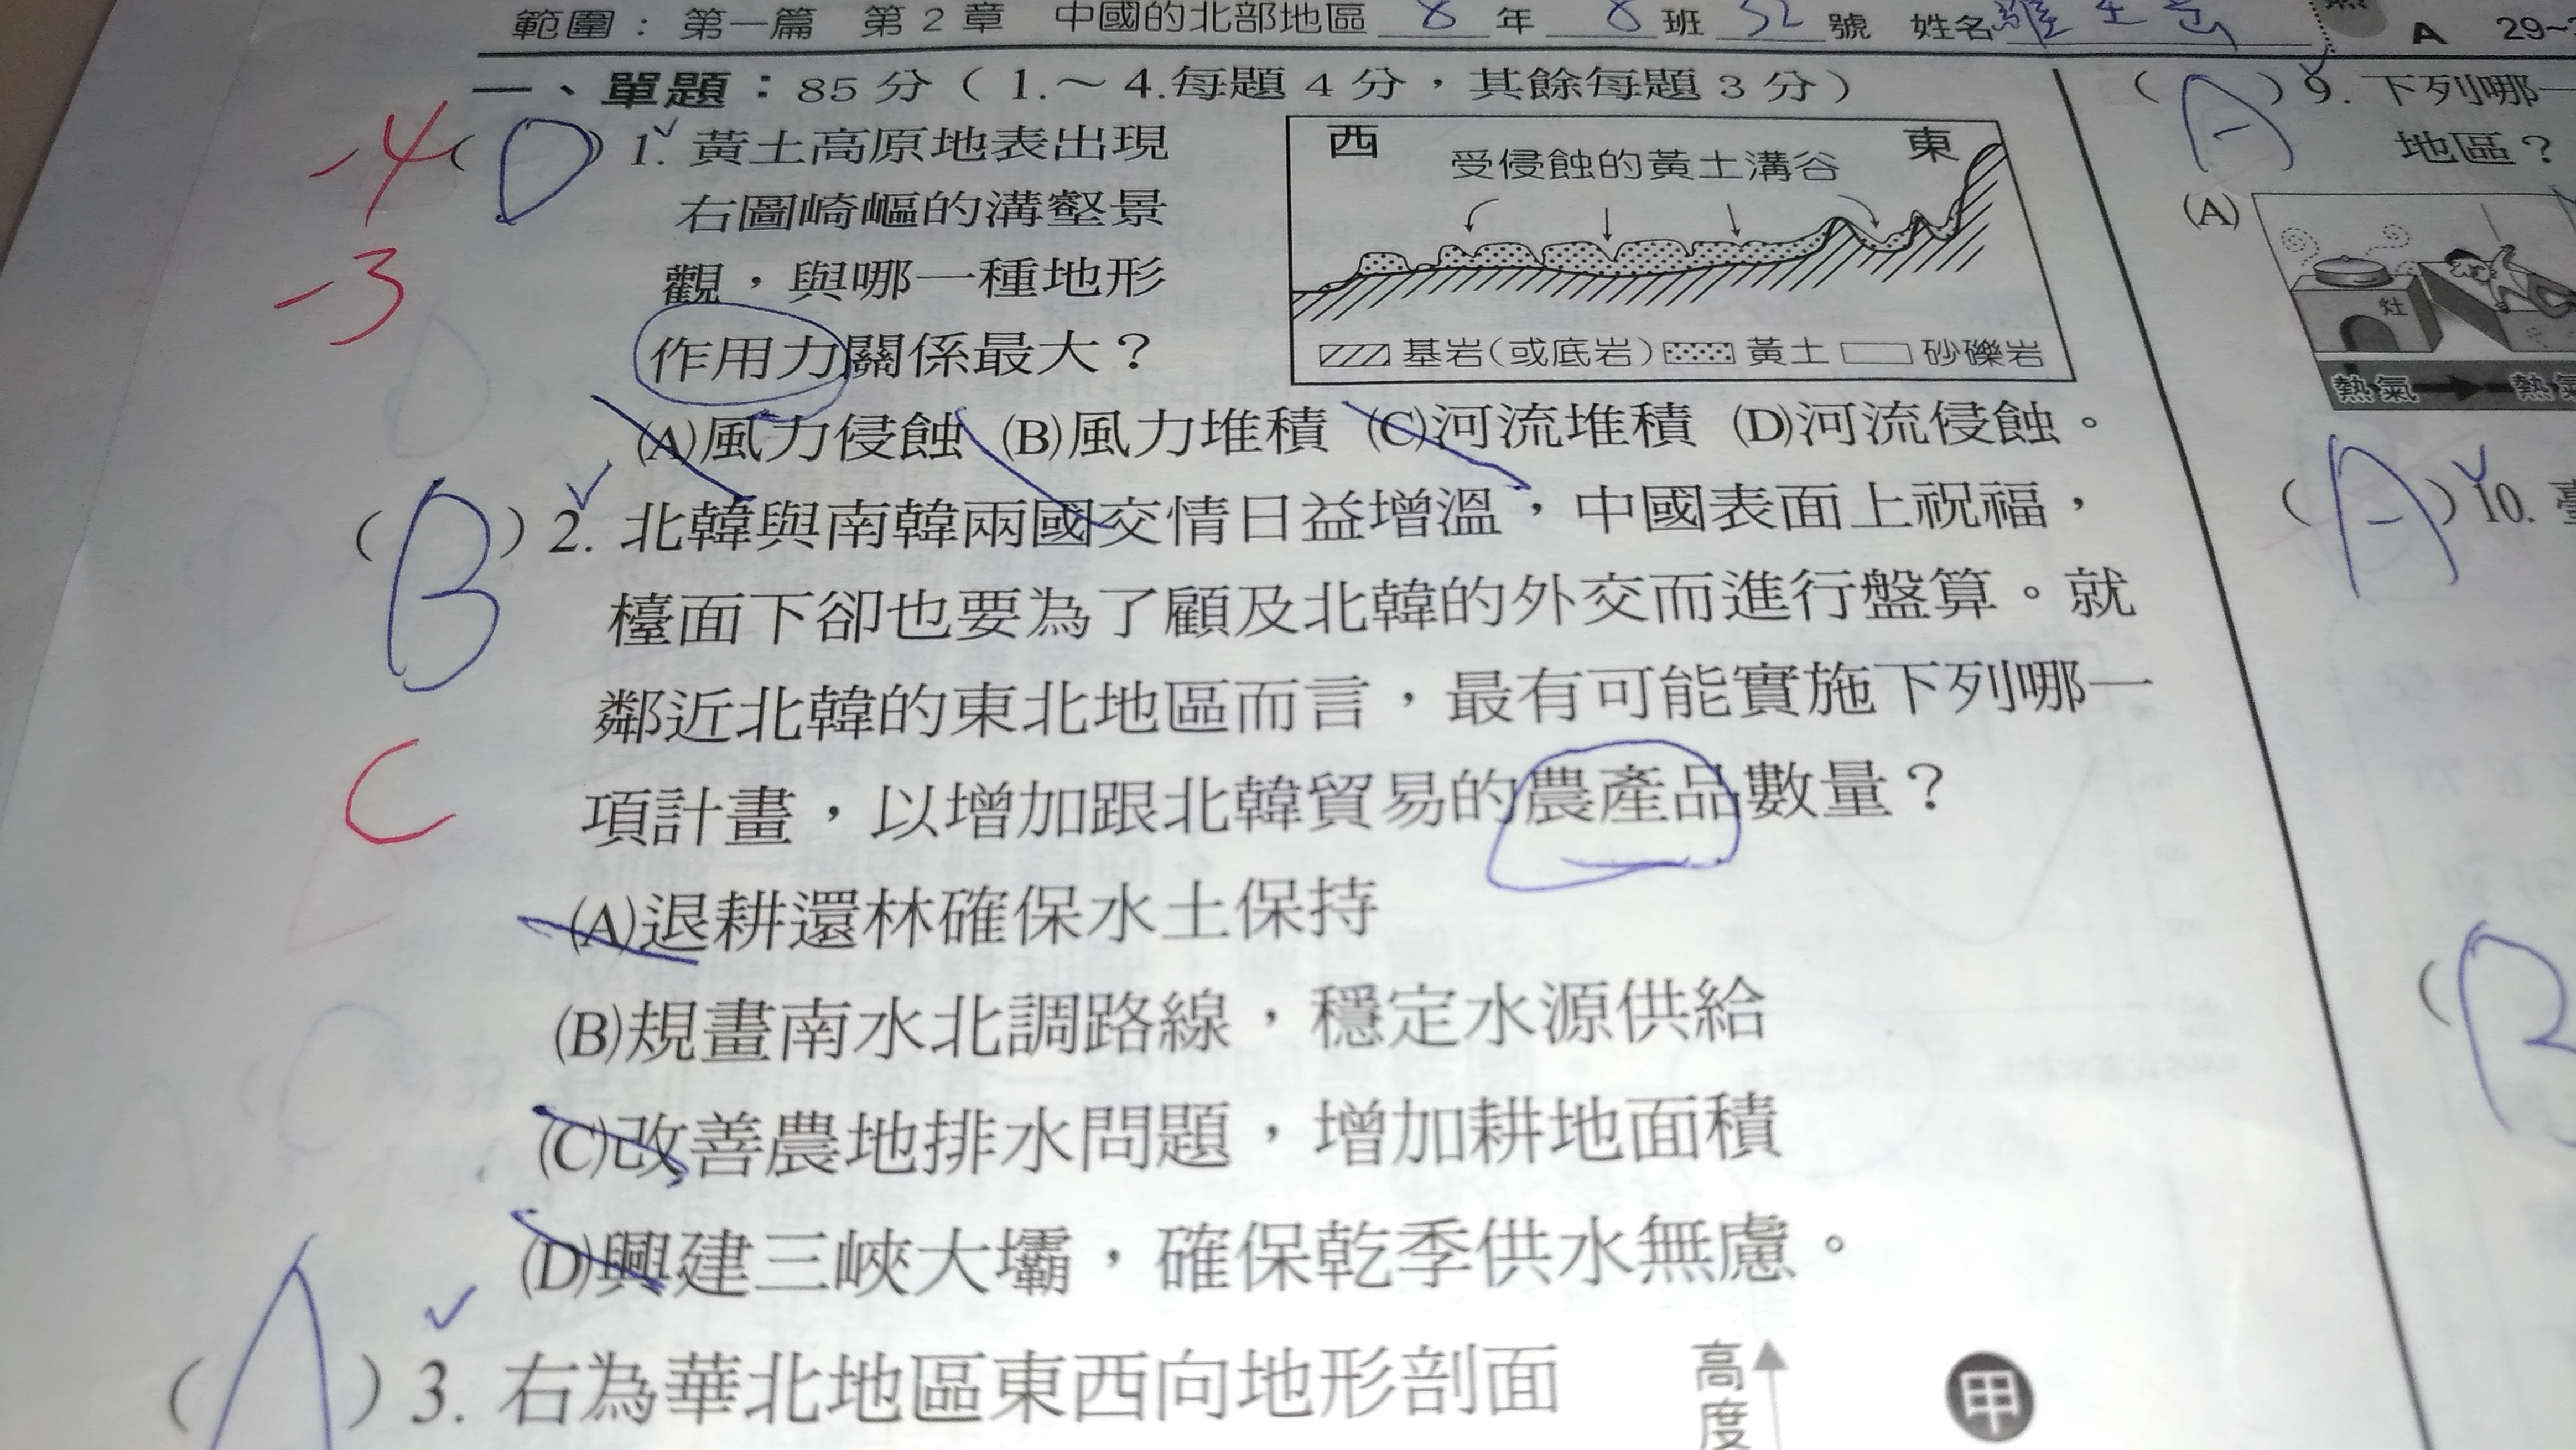 範圍：第一篇 第2章 中國的北部地區 8 年 8 班 52 號 姓名
A 29~
一、單題：85分（1.～4.每題4分，其餘每題3分）
-4
-3
(D) 1. 黃土高原地表出現
右圖崎嶇的溝壑景
觀，與哪一種地形
作用力關係最大？
西 東
受侵蝕的黃土溝谷
基岩(或底岩) 黃土 砂礫岩
(A)風力侵蝕 (B)風力堆積 (C)河流堆積 (D)河流侵蝕。
(B) 2. 北韓與南韓兩國交情日益增溫，中國表面上祝福，
檯面下卻也要為了顧及北韓的外交而進行盤算。就
鄰近北韓的東北地區而言，最有可能實施下列哪一
C
項計畫，以增加跟北韓貿易的農產品數量？
(A)退耕還林確保水土保持
(B)規畫南水北調路線，穩定水源供給
(C)改善農地排水問題，增加耕地面積
(D)興建三峽大壩，確保乾季供水無慮。
(A) 3. 右為華北地區東西向地形剖面
高度
甲
(A) 9. 下列哪一
地區？
(A)
灶
熱氣 熱
(A) 10.
(B